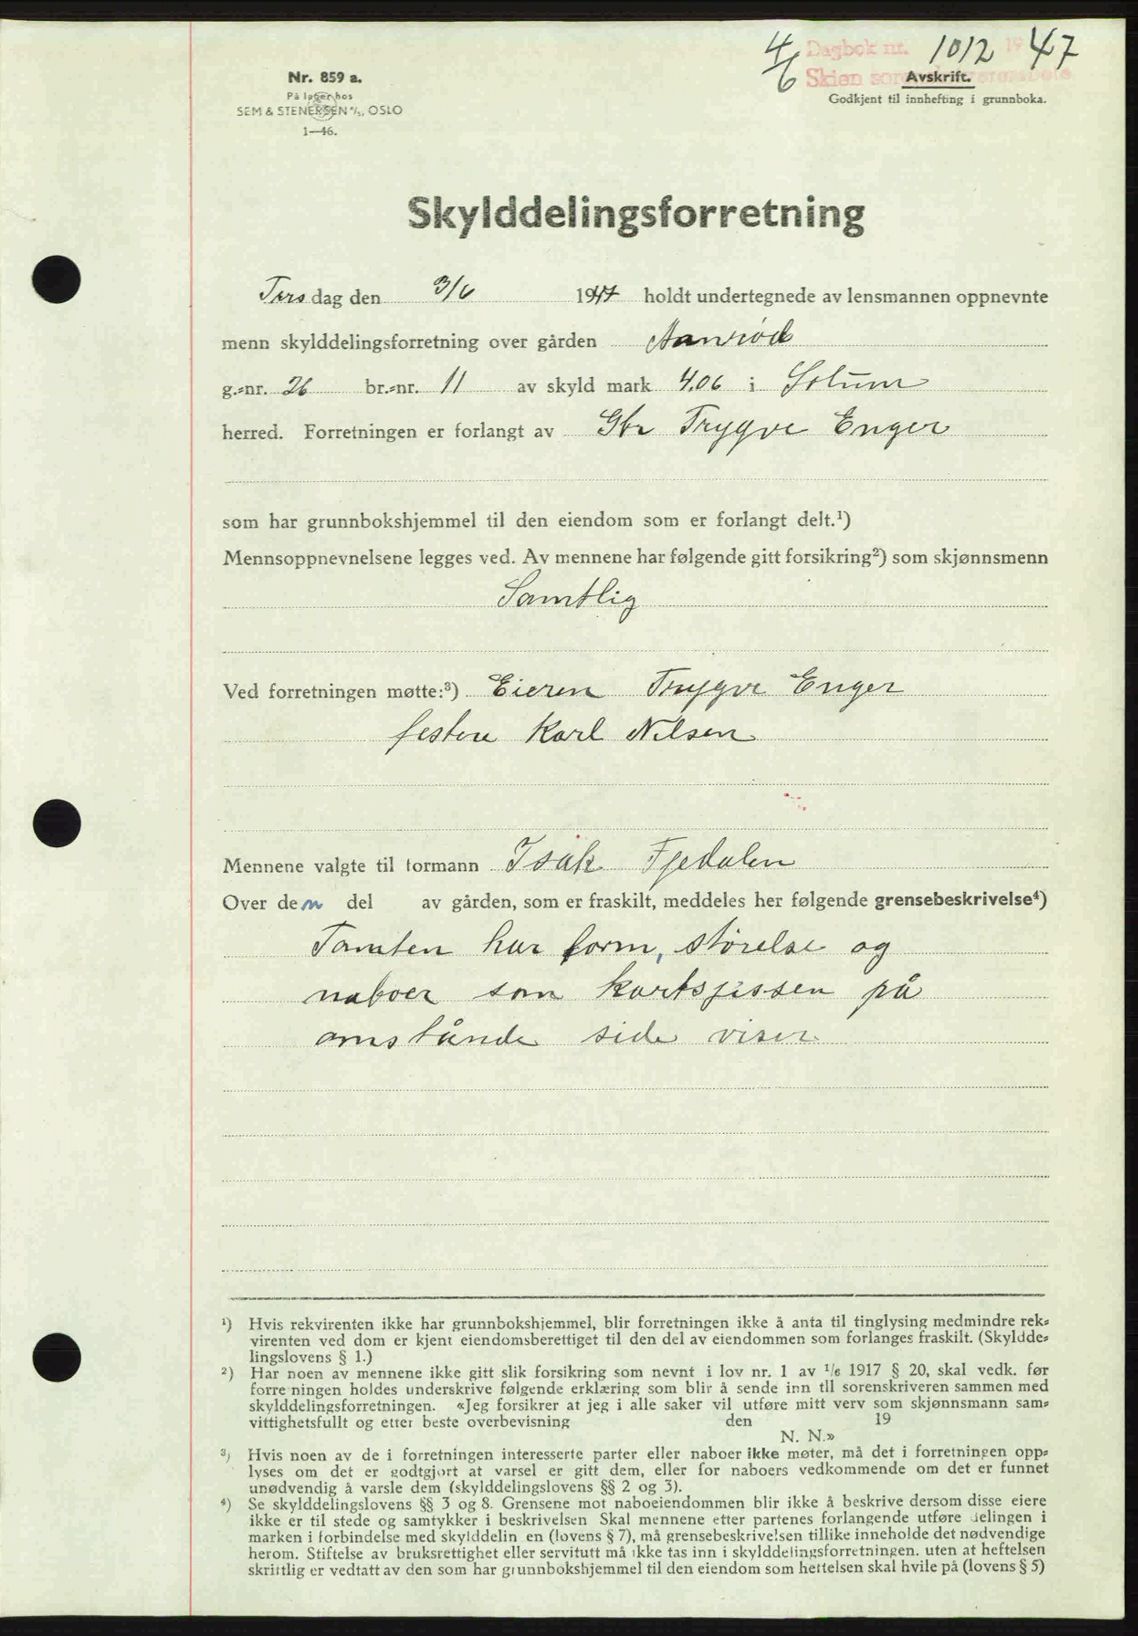 4/6 Dagbok nr. 1012 1947
Nr. 859 a.
Avskrift.
På lager hos
Godkjent til innhefting i grunnboka.
SEM & STENERSEN A/S, OSLO
1—46.
Skylddelingsforretning
Tirsdag den 3/6 1947 holdt undertegnede av lensmannen oppnevnte
menn skylddelingsforretning over gården Aanrød
g.-nr. 26 br.-nr. 11 av skyld mark 4.06 i Solum
herred. Forretningen er forlangt av Gbr Trygve Enger
som har grunnbokshjemmel til den eiendom som er forlangt delt.¹)
Mennsoppnevnelsene legges ved. Av mennene har følgende gitt forsikring²) som skjønnsmenn
Samtlig
Ved forretningen møtte:³) Eieren Trygve Enger
festere Karl Nilsen
Mennene valgte til formann Isak Fjedalen
Over den del av gården, som er fraskilt, meddeles her følgende grensebeskrivelse⁴)
Tomten har form, størelse og
naboer som kartskissen på
omstånde side viser
¹) Hvis rekvirenten ikke har grunnbokshjemmel, blir forretningen ikke å anta til tinglysing medmindre rek-
virenten ved dom er kjent eiendomsberettiget til den del av eiendommen som forlanges fraskilt. (Skyldde-
lingslovens § 1.)
²) Har noen av mennene ikke gitt slik forsikring som nevnt i lov nr. 1 av 1/6 1917 § 20, skal vedk. før
forretningen holdes underskrive følgende erklæring som blir å sende inn til sorenskriveren sammen med
skylddelingsforretningen. «Jeg forsikrer at jeg i alle saker vil utføre mitt verv som skjønnsmann sam-
vittighetsfullt og etter beste overbevisning den 19
N. N.»
³) Hvis noen av de i forretningen interesserte parter eller naboer ikke møter, må det i forretningen opp-
lyses om det er godtgjort at varsel er gitt dem, eller for naboers vedkommende om det er funnet
unødvendig å varsle dem (skylddelingslovens §§ 2 og 3).
⁴) Se skylddelingslovens §§ 3 og 8. Grensene mot naboeiendommen blir ikke å beskrive dersom disse eiere
ikke er til stede og samtykker i beskrivelsen Skal mennene etter partenes forlangende utføre delingen i
marken i forbindelse med skylddelin en (lovens § 7), må grensebeskrivelsen tillike inneholde det nødvendige
herom. Stiftelse av bruksrettighet eller servitutt må ikke tas inn i skylddelingsforretningen. uten at heftelsen
skriftlig er vedtatt av den som har grunnbokshjemmel til den eiendom som heftelsen skal hvile på (lovens § 5)